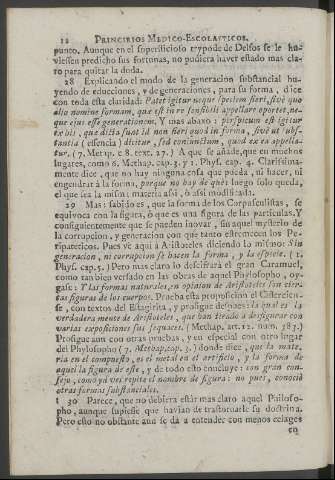 12 PRINCIPIOS MEDICO-ESCOLASTICOS.
punto. Aunque en el supersticioso trypode de Delfos se le hu-
viessen predicho sus fortunas, no pudiera haver estado mas cla-
ro para quitar la duda.
28 Explicando el modo de la generacion substancial hu-
yendo de educciones, y de generaciones, para su forma, dice
con toda esta claridad: Patet igitur neque speciem fieri, sivè quo
alio nomine formam, quæ est in re sensibili appellare oportet, ne-
que ejus esse generationem. Y mas abaxo: perspicuum est igitur
ex his, que dicta sunt id non fieri quod in forma, sivè ut subs-
tantia (essencia) dicitur, sed conjunctum, quod ex ea appella-
tur. (7. Metap. c. 8. text. 27.) A que se añade, que en muchos
lugares, como 6. Methap. cap. 3. y 1. Phys. cap. 4. Clarissima-
mente dice, que no hay ninguna cosa que pueda, ni hacer, ni
engendrar à la forma, porque no hay de què: luego solo queda,
el que sea la misma materia assi, ò assi modificada.
29 Mas: sabido es, que la forma de los Corpusculistas, se
equivoca con la figura, ò que es una figura de las particulas. Y
consiguientemente que se pueden inovar, sin aquel mysterio de
la corrupcion, y generacion con que tanto estremecen los Pe-
ripateticos. Pues vè aqui à Aristoteles diciendo lo mismo: Sin
generacion, ni corrupcion se hacen la forma, y la especie. (1.
Phys. cap. 5.) Pero mas claro lo descifrarà el gran Caramuel,
como tan bien versado en las obras de aquel Philosopho, oy-
gase: Y las formas naturales, en opinion de Aristoteles son cier-
tas figuras de los cuerpos. Prueba esta proposicion el Cisterciense
, con textos del Estagirita, y prosigue despues: la qual es la
verdadera mente de Aristoteles, que han tirado à desfigurar con
varias exposiciones sus sequaces. (Methap. art. 12. num. 383.)
Prosigue aun con otras pruebas, y en especial con otro lugar
del Phylosopho (7. Methap. cap. 3.) donde dice, que la mate-
ria en el compuesto, es el metal en el artificio, y la forma de
aquel la figura de este, y de todo esto concluye: con gran con-
sejo, como yà vès repite el nombre de figura: no pues, conociò
otras formas substanciales.
30 Parece, que no debiera estàr mas claro aquel Philoso-
pho, aunque supiesse que havian de trastornarle su doctrina.
Pero esto no obstante aun se dà à entender con menos celages
en